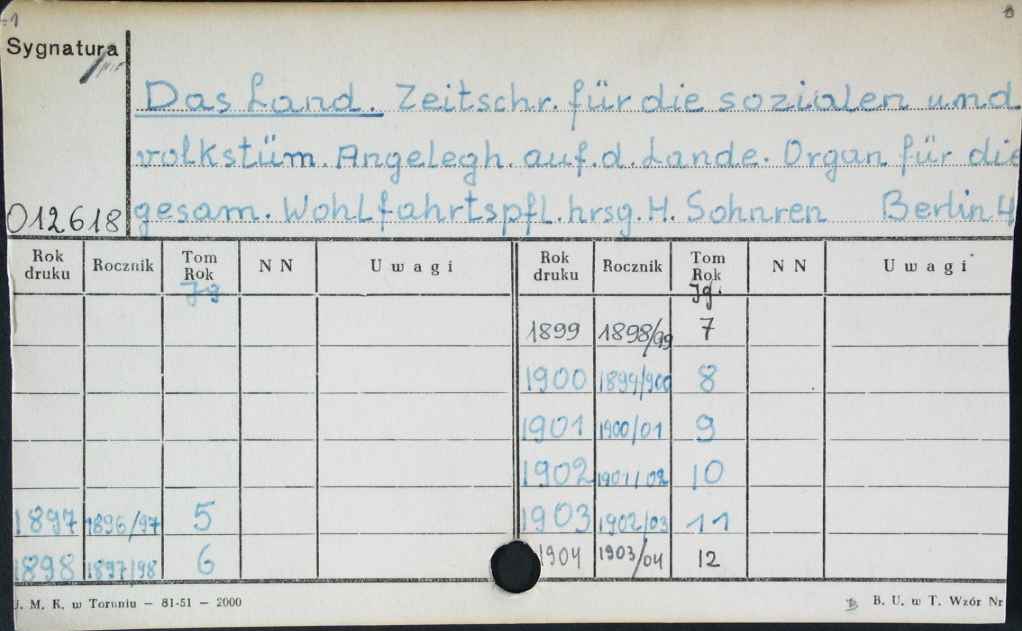 1
Sygnatura
Das Land. Zeitschr. für die sozialen und
volkstüm. Angelegh. auf. d. Lande. Organ für die
012618 gesam. Wohlfahrtspfl. hrsg. H. Sohnren Berlin 4
Rok druku Rocznik Tom Rok Jg NN Uwagi Rok druku Rocznik Tom Rok Jg. NN Uwagi
1899 1898/99 7
1900 1899/900 8
1901 1900/01 9
1902 1901/02 10
1897 1896/97 5 1903 1902/03 11
1898 1897/98 6 1904 1903/04 12
J. M. K. w Toruniu — 81-51 — 2000 B. U. w T. Wzór Nr